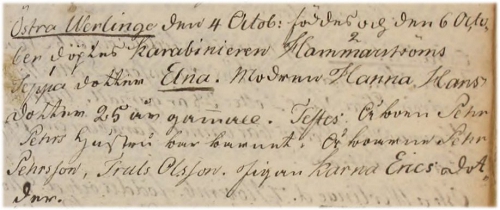 Östra Werlinge den 4 Octob: föddes og den 6 Octo-
ber döptes Karabinieren Hammarströms
dotter Elna. Modren Hanna Hans
dotter 25 år gammal. Testes Åboen Pehr
Pehrs Hustru bar barnet. Åboarne Pehr
Pehrsson, Truls Olsson. Pigan Karna Erics dot
der.